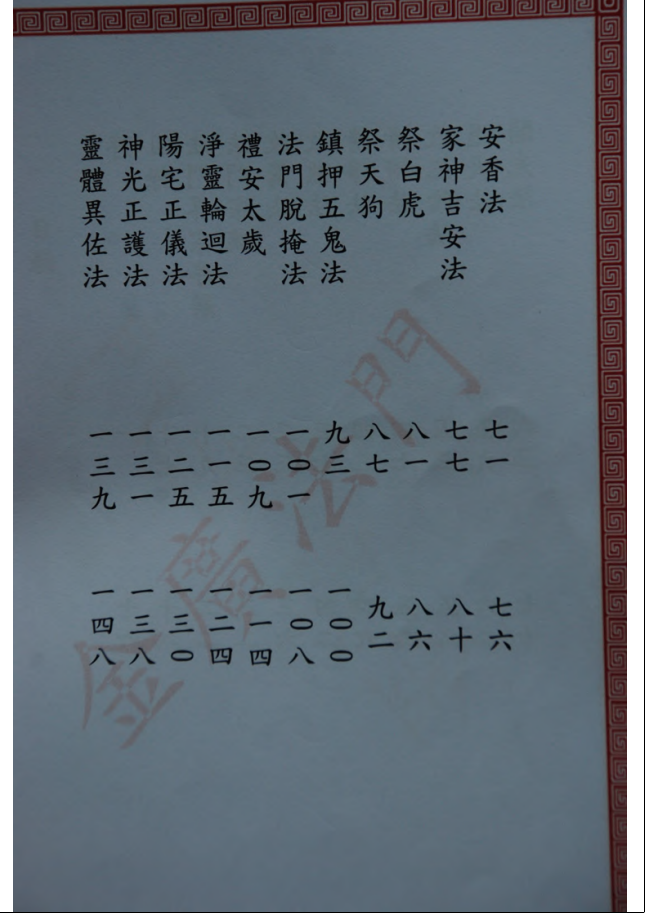 安香法 七一 七六
家神吉安法 七七 八十
祭白虎 八一 八六
祭天狗 八七 九二
鎮押五鬼法 九三 一00
法門脫掩法 一0一 一0八
禮安太歲 一0九 一一四
淨靈輪迴法 一一五 一二四
陽宅正儀法 一二五 一三0
神光正護法 一三一 一三八
靈體異佐法 一三九 一四八
金廣法門